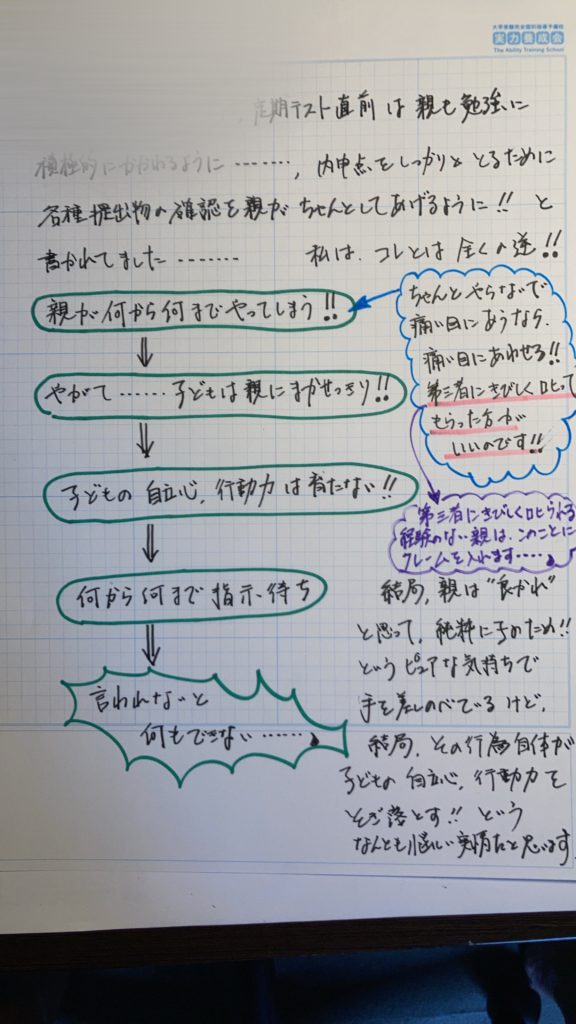 大学受験完全個別指導予備校
実力養成会
The Ability Training School
定期テスト直前は親も勉強に
積極的にかかわるように‥‥‥‥, 内申点をしっかりととるために
各種提出物の確認を親がちゃんとしてあげるように!! と
書かれてました‥‥‥‥ 私は、コレとは全くの逆!!
親が何から何までやってしまう!!
ちゃんとやらないで
痛い目にあうなら、
痛い目にあわせる!!
第三者にきびしく叱って
もらった方が
いいのです!!
⇓
やがて‥‥‥子どもは親にまかせっきり!!
⇓
子どもの自立心、行動力は育たない!!
第三者にきびしく叱られる
経験のない親は、このことに
クレームを入れます‥‥。
⇓
何から何まで指示待ち
⇓
言われないと
何もできない‥‥‥。
結局、親は"良かれ"
と思って、純粋に子のため!!
というピュアな気持ちで
手を差しのべているけど、
結局、その行為自体が
子どもの自立心、行動力を
そぎ落とす!! という
なんとも悩しい実情だと思います